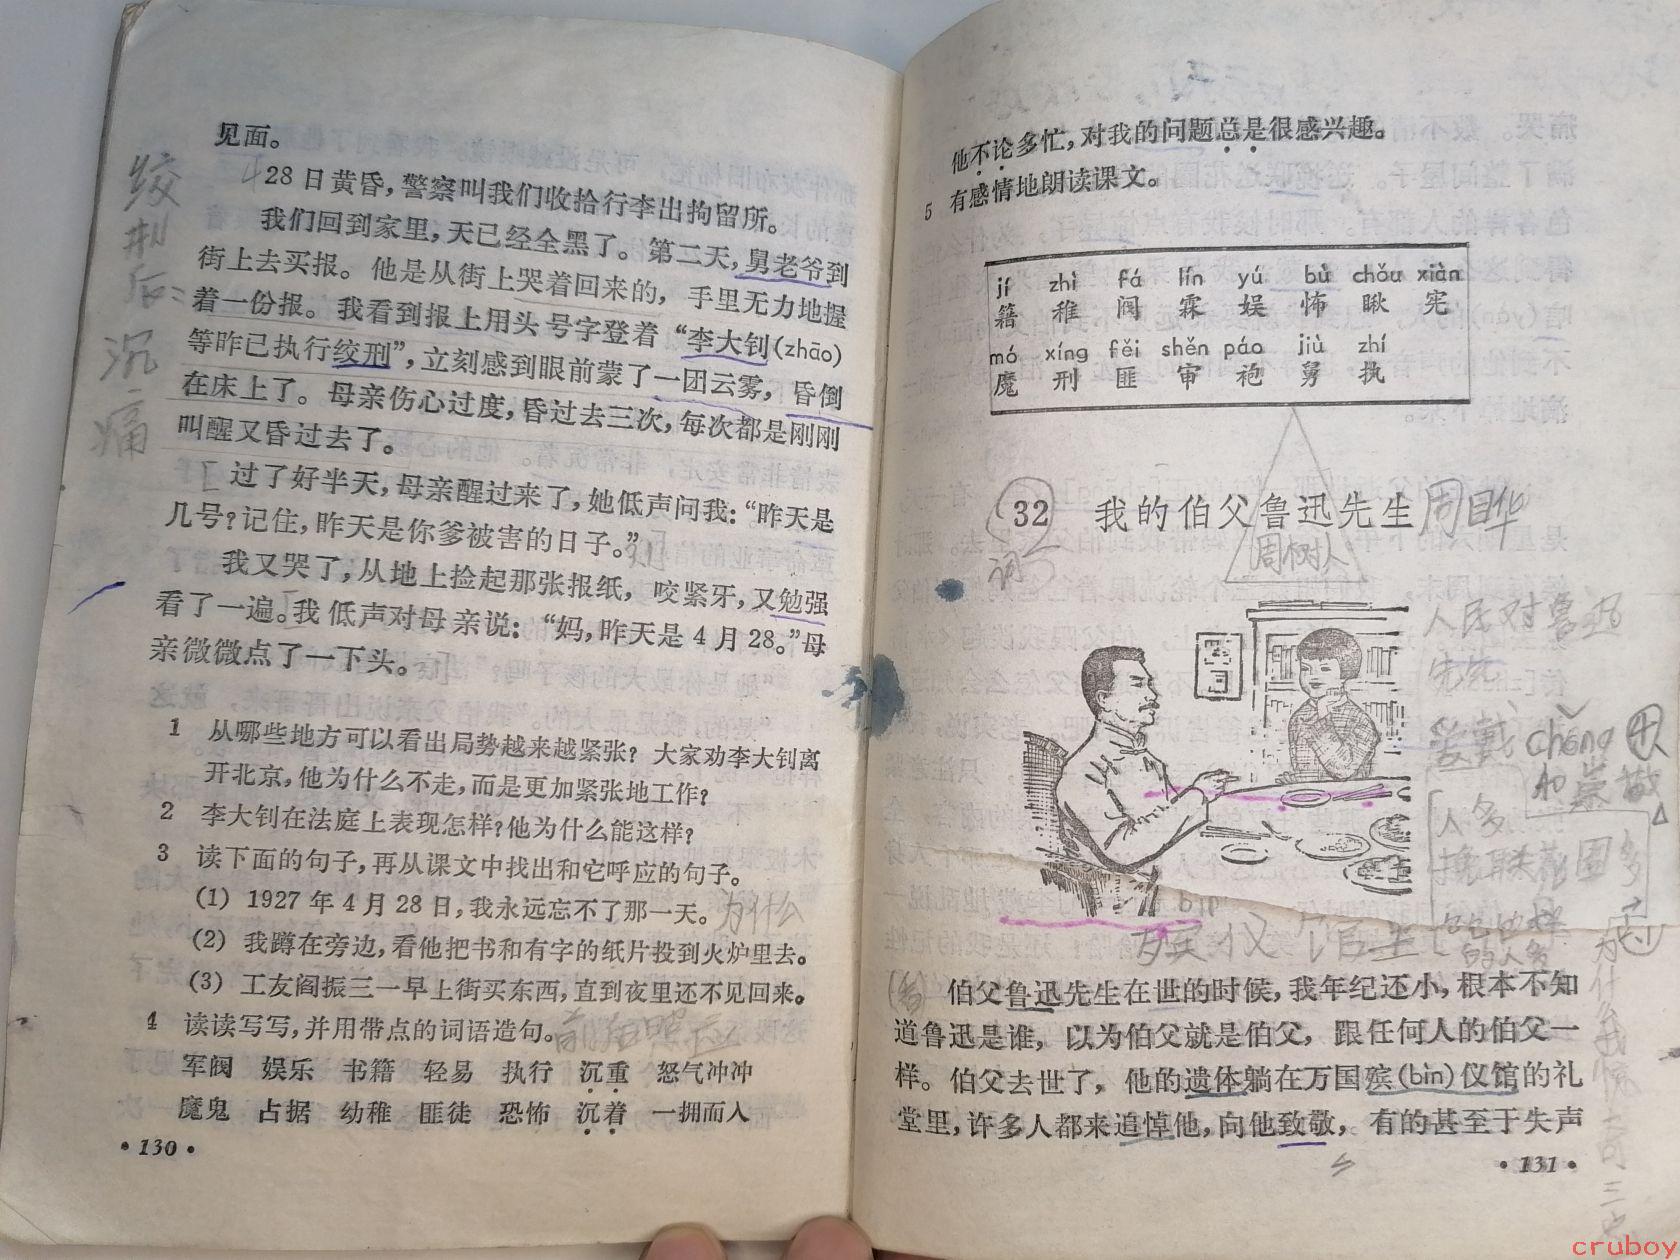 见面。
28日黄昏，警察叫我们收拾行李出拘留所。
我们回到家里，天已经全黑了。第二天，舅老爷到
街上去买报。他是从街上哭着回来的，手里无力地握
着一份报。我看到报上用头号字登着“李大钊(zhāo)
等昨已执行绞刑”，立刻感到眼前蒙了一团云雾，昏倒
在床上了。母亲伤心过度，昏过去三次，每次都是刚刚
叫醒又昏过去了。
过了好半天，母亲醒过来了，她低声问我：“昨天是
几号？记住，昨天是你爹被害的日子。”
我又哭了，从地上捡起那张报纸，咬紧牙，又勉强
看了一遍。我低声对母亲说：“妈，昨天是4月28。”母
亲微微点了一下头。
绞刑后：沉痛
1 从哪些地方可以看出局势越来越紧张？大家劝李大钊离
开北京，他为什么不走，而是更加紧张地工作？
2 李大钊在法庭上表现怎样？他为什么能这样？
3 读下面的句子，再从课文中找出和它呼应的句子。
(1) 1927年4月28日，我永远忘不了那一天。为什么
(2) 我蹲在旁边，看他把书和有字的纸片投到火炉里去。
(3) 工友阎振三一早上街买东西，直到夜里还不见回来。
4 读读写写，并用带点的词语造句。前后照应
军阀 娱乐 书籍 轻易 执行 沉重 怒气冲冲
魔鬼 占据 幼稚 匪徒 恐怖 沉着 一拥而入
·130·
他不论多忙，对我的问题总是很感兴趣。
5 有感情地朗读课文。
jí zhì fá lín yú bù chǒu xiàn
籍 稚 阀 霖 娱 怖 瞅 宪
mó xíng fěi shěn páo jiù zhí
魔 刑 匪 审 袍 舅 执
32 我的伯父鲁迅先生 周晔
词
周树人
人民对鲁迅
先生
爱戴 chóng
和崇敬
人多
挽联花圈多
各色各样
的人多
bìn
殡仪馆
伯父鲁迅先生在世的时候，我年纪还小，根本不知
道鲁迅是谁，以为伯父就是伯父，跟任何人的伯父一
样。伯父去世了，他的遗体躺在万国殡(bìn)仪馆的礼
堂里，许多人都来追悼他，向他致敬，有的甚至于失声
·131·
cruboy